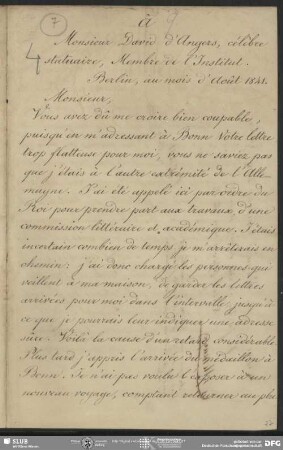 7
à
Monsieur David d'Angers, célèbre
statuaire, Membre de l'Institut.
Berlin, au mois d'Août 1841.
Monsieur,
Vous avez dû me croire bien coupable,
puisqu'en m'adressant à Bonn Votre lettre
trop flatteuse pour moi, vous ne saviez pas
que j'étais à l'autre extrémité de l'Alle-
magne. J'ai été appelé ici par ordre du
Roi pour prendre part aux travaux d'une
commission littéraire et académique. J'étais
incertain combien de temps je m'arrêterais en
chemin: j'ai donc chargé les personnes qui
veillent à ma maison, de garder les lettres
arrivées pour moi dans l'intervalle, jusqu'à
ce que je pourrais leur indiquer une adresse
sûre. Voilà la cause d'un retard considérable
Plus tard j'appris l'arrivée du médaillon à
Bonn. Je n'ai pas voulu l'exposer à un
nouveau voyage, comptant retourner au plu
SLUB
Wir führen Wissen.
DFG